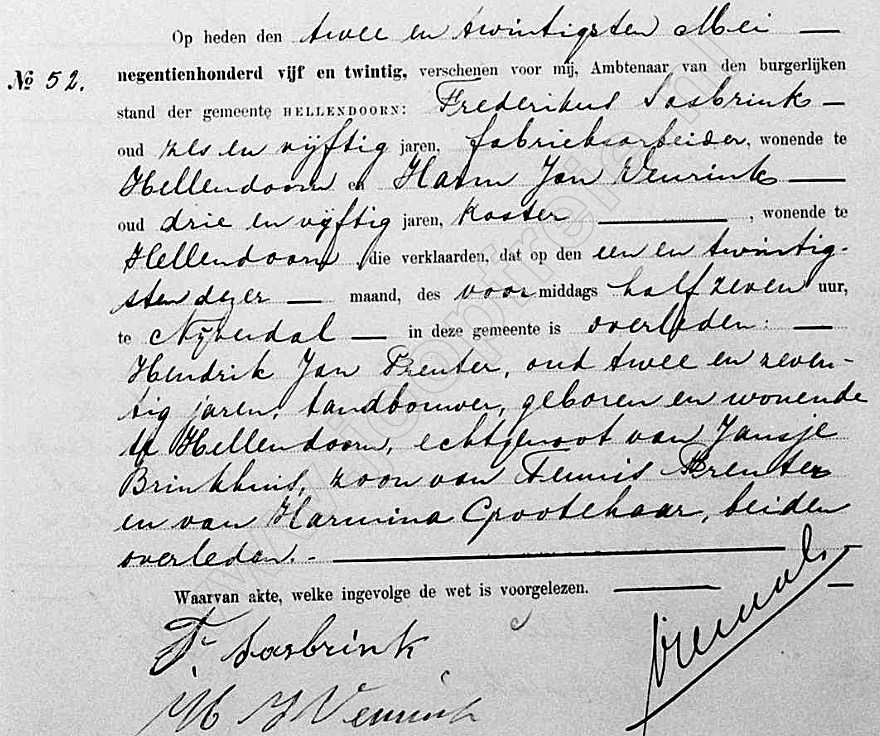 Op heden den twee en twintigsten Mei
No 52. negentienhonderd vijf en twintig, verschenen voor mij, Ambtenaar van den burgerlijken
stand der gemeente HELLENDOORN: Frederikus Sasbrink
oud zes en vijftig jaren, fabrieksarbeider, wonende te
Hellendoorn en Harm Jan Venrink
oud drie en vijftig jaren, koster, wonende te
Hellendoorn, die verklaarden, dat op den een en twintig-
sten dezer maand, des voormiddags half zeven uur,
te Nijverdal in deze gemeente is overleden:
Hendrik Jan Brenter, oud twee en zeven-
tig jaren, landbouwer, geboren en wonende
te Hellendoorn, echtgenoot van Jansje
Brinkhuis, zoon van Teunis Brenter
en van Harmina Grootehaar, beiden
overleden.-
Waarvan akte, welke ingevolge de wet is voorgelezen.
F. Sasbrink
H J Venrink